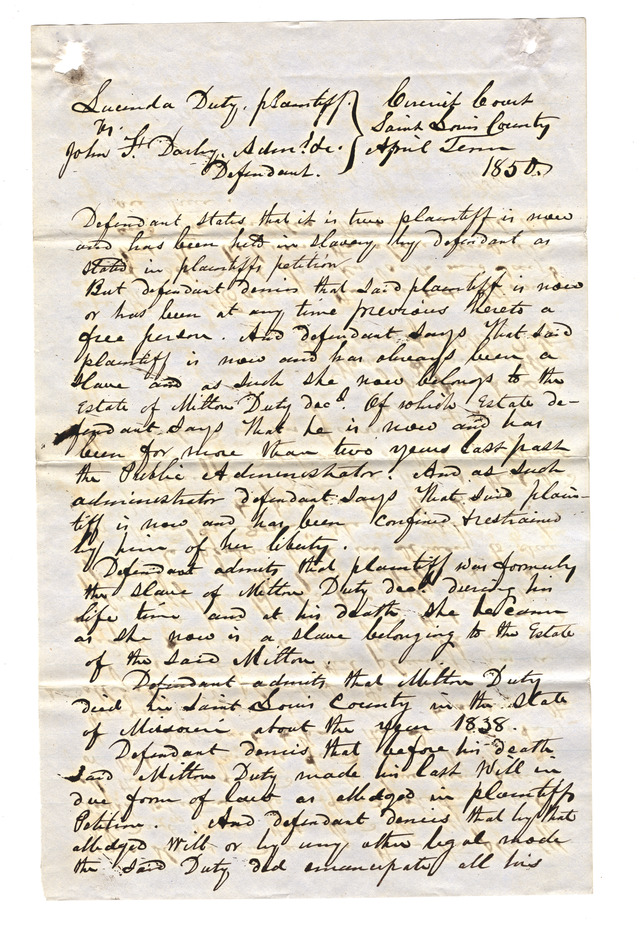 Lucinda Duty, plaintiff } Circuit Court
vs. Saint Louis County
John F. Darby, Adm.r &c. April Term
Defendant. 1850.
Defendant states that it is true plaintiff is now
and has been held in slavery by defendant as
stated in plaintiffs petition
But defendant denies that said plaintiff is now
or has been at any time previous hereto a
free person. And defendant says that said
plaintiff is now and has always been a
slave and as such she now belongs to the
Estate of Milton Duty decd. Of which Estate de-
fendant says that he is now and has
been for more than two years last past
the Public Administrator. And as such
administrator defendant says that said plain-
tiff is now and has been confined & restrained
by him of her liberty.
Defendant admits that plaintiff was formerly
the slave of Milton Duty decd. during his
life time and at his death she became
as she now is a slave belonging to the Estate
of the said Milton.
Defendant admits that Milton Duty
died in Saint Louis County in the State
of Missouri about the year 1838.
Defendant denies that before his death
said Milton Duty made his last Will in
due form of law as alledged in plaintiffs
Petition. And defendant denies that by that
alledged Will or by any other legal mode
the said Duty did emancipate all his